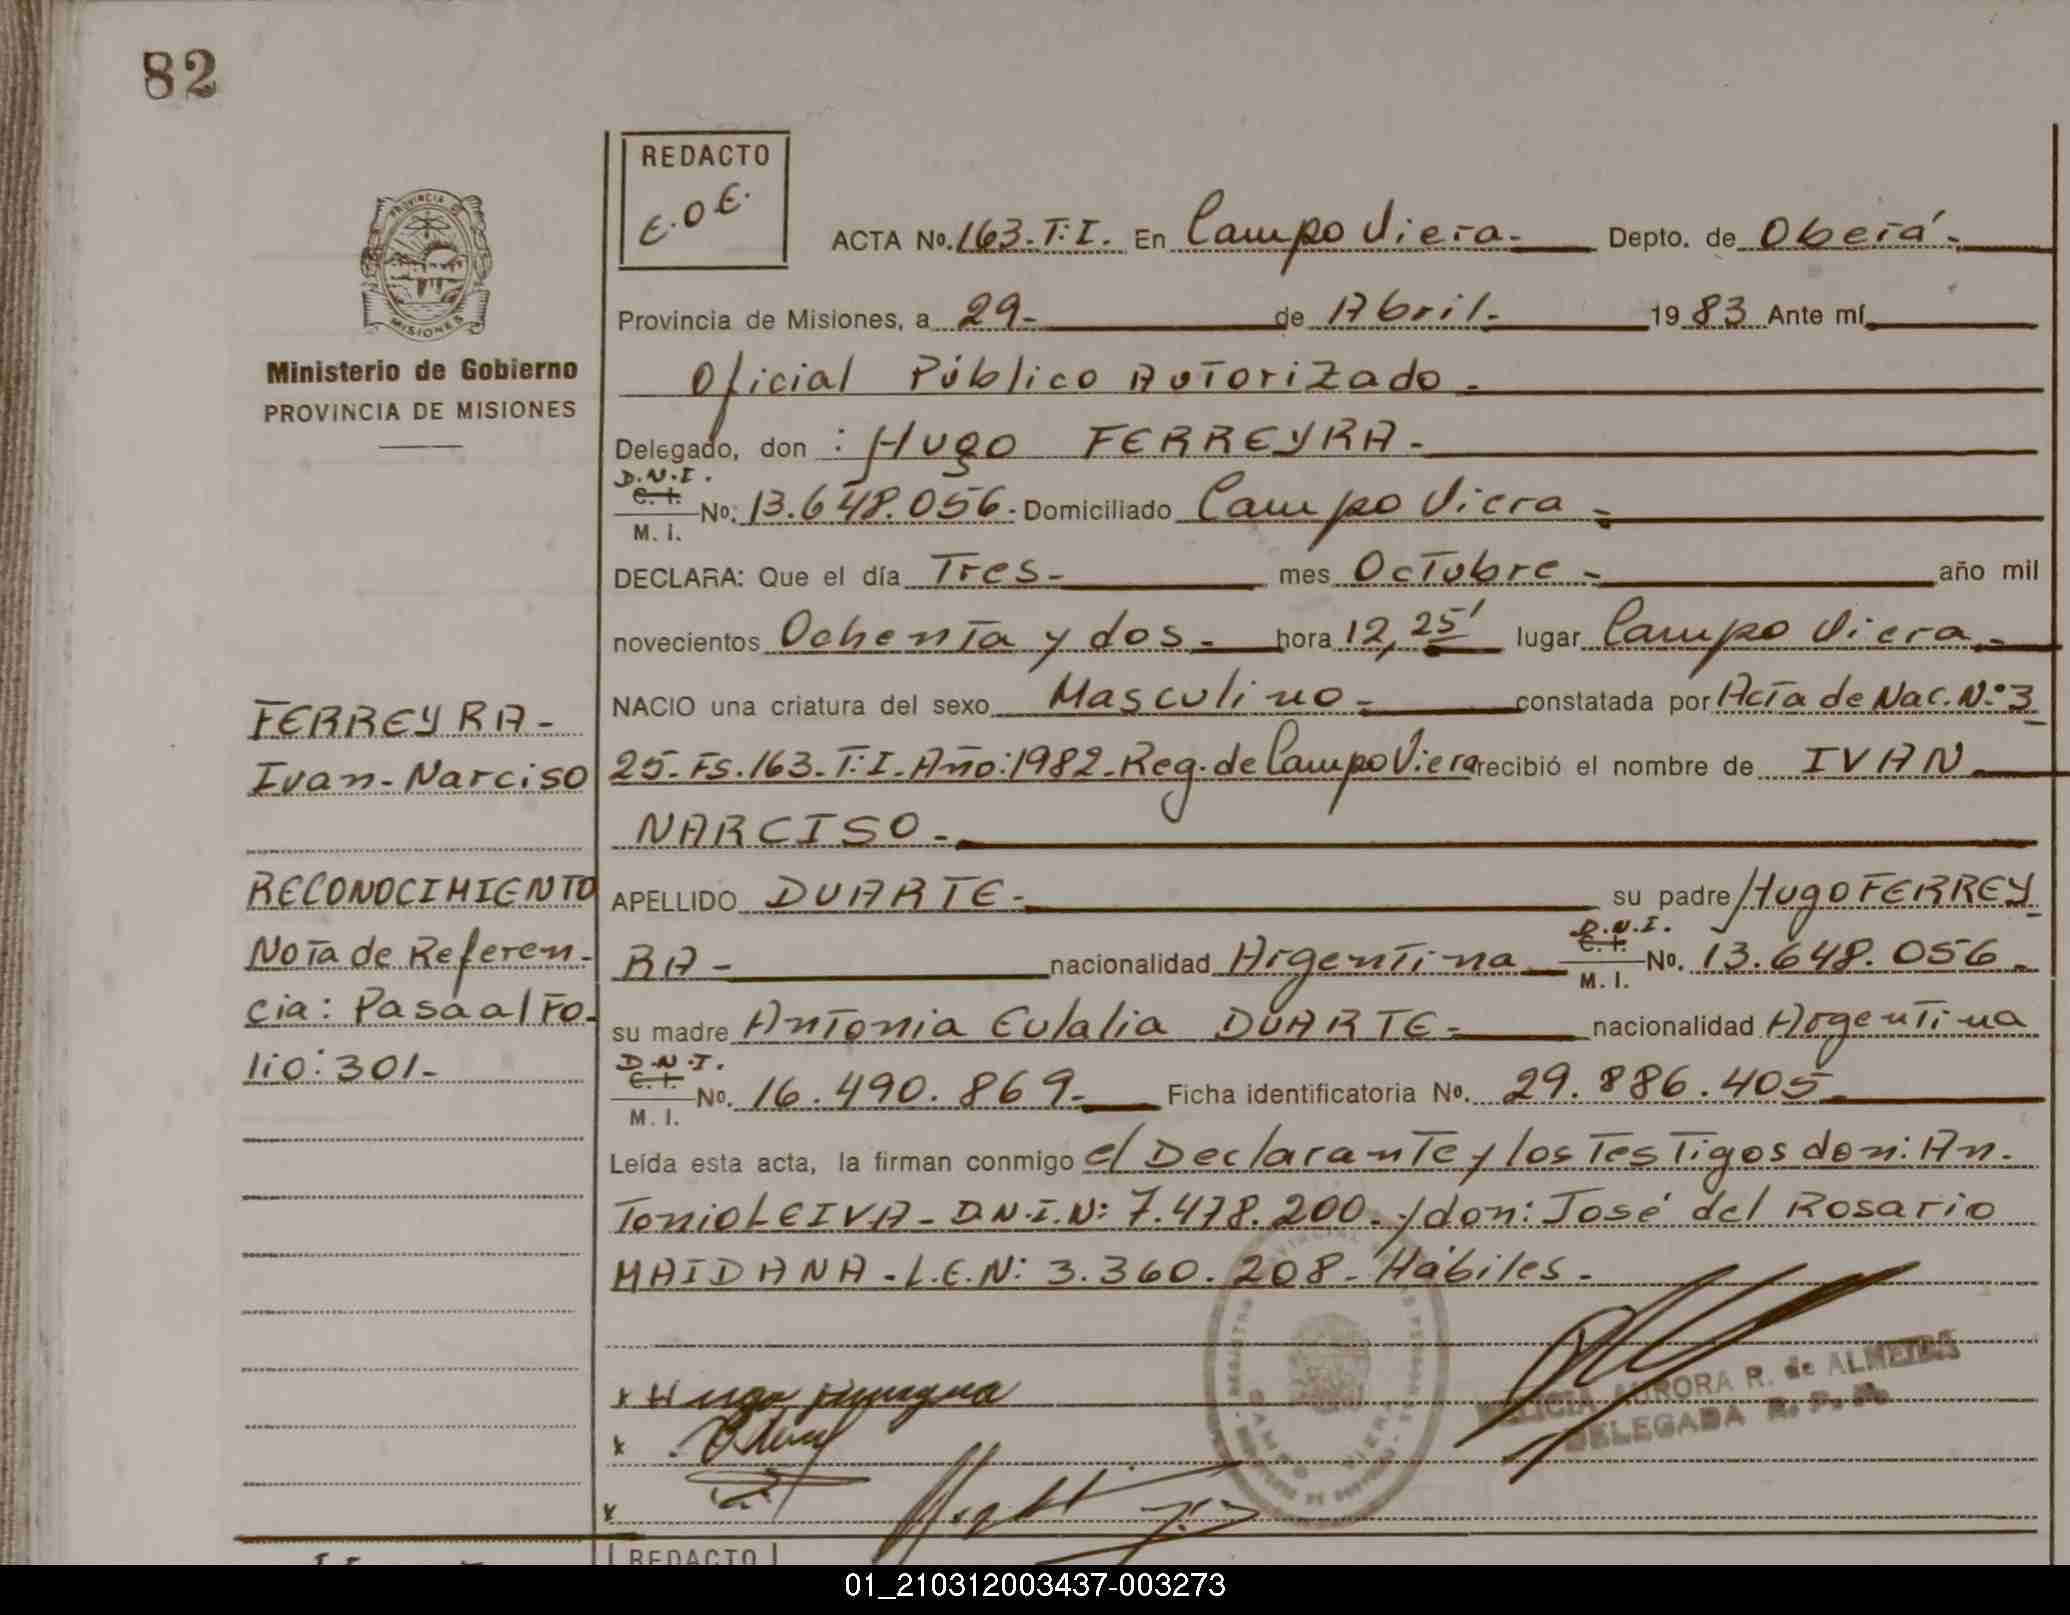 82
REDACTO
E.O.E.
ACTA No. 163.T:I. En Campo Viera.- Depto. de Oberá.-
Provincia de Misiones, a 29- de Abril.- 19 83 Ante mí
Oficial Público Autorizado.-
Delegado, don : Hugo FERREYRA.-
D.N.I.
C.I.
M. I. No. 13.648.056.- Domiciliado Campo Viera.-
DECLARA: Que el día Tres- mes Octubre- año mil
novecientos Ochenta y dos.- hora 12,25' lugar Campo Viera.-
NACIO una criatura del sexo Masculino- constatada por Acta de Nac. N:º3
25-Fs.163-T:I-Año:1982-Reg. de Campo Viera recibió el nombre de IVAN
NARCISO.-
APELLIDO DUARTE.- su padre Hugo FERREY
RA- nacionalidad Argentina D.N.I. C.I. M. I. No. 13.648.056.-
su madre Antonia Eulalia DUARTE.- nacionalidad Argentina
D.N.I.
C.I.
M. I. No. 16.490.869.- Ficha identificatoria No. 29.886.405.-
Leída esta acta, la firman conmigo el Declarante y los Testigos don: An.
Tonio LEIVA- D.N.I.N: 7.478.200.- y don: José del Rosario
MAIDANA-L.E.N: 3.360.208-Hábiles.-
PROVINCIA DE
MISIONES
Ministerio de Gobierno
PROVINCIA DE MISIONES
FERREYRA-
Ivan-Narciso
RECONOCIMIENTO
Nota de Referen-
cia: Pasa al Fo-
lio: 301-
x Hugo
x
x
CAMPO VIERA
AURORA R. de ALMEIDA
DELEGADA R. P. A.
REDACTO
01_210312003437-003273